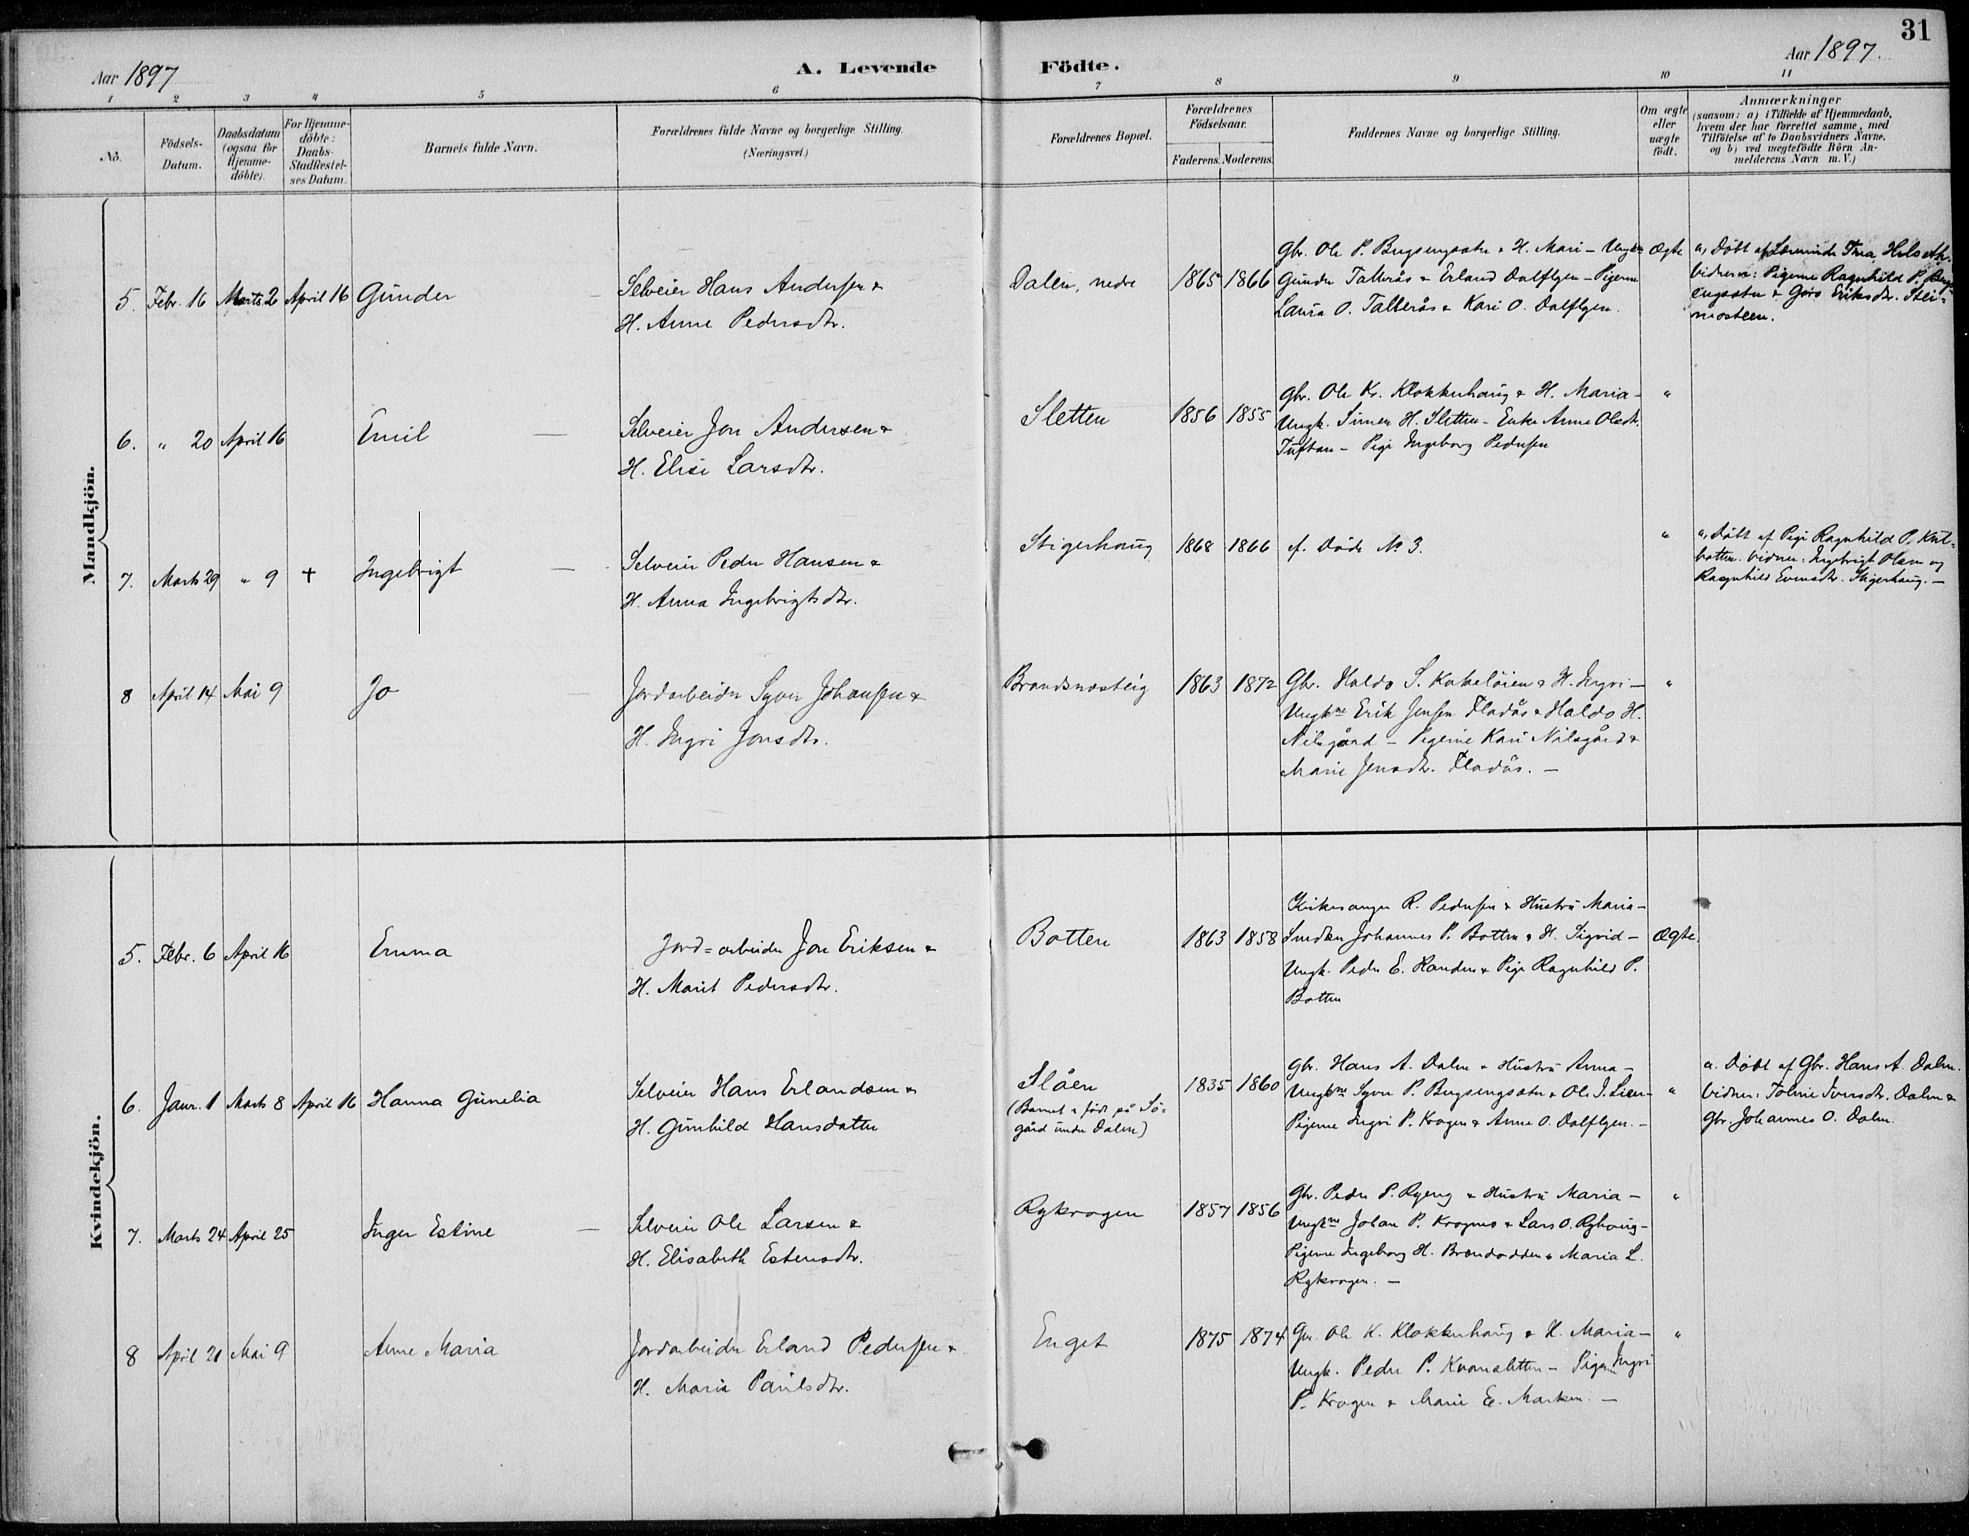 31
Aar 1897
A. Levende
Födte.
Aar 1897.
1 2 3 4 5 6 7 8 9 10 11
No.
Födsels-Datum.
Daabsdatum (ogsaa for Hjemme-döbte).
For Hjemme-döbte: Daabs-Stadfæstel-ses Datum.
Barnets fulde Navn.
Forældrenes fulde Navne og borgerlige Stilling.
(Næringsvei.)
Forældrenes Bopæl.
Forældrenes Födselsaar.
Faderens. Moderens.
Faddernes Navne og borgerlige Stilling.
Om ægte eller uægte födt.
Anmærkninger
(saasom: a) i Tilfælde af Hjemmedaab, hvem der har forrettet samme, med Tilföielse af to Daabsvidners Navne, og b) ved uægtefödte Börn An-melderens Navn m. V.)
Mandkjön.
5. Febr. 16 Marts 2 April 16 Gunder
Selveier Hans Andersen &
H. Anne Pedersdtr.
Dalen, nedre 1865 1866
Gbr. Ole P. Bugsengsætr & H. Mari – Ungkne
Gunder Tallerås & Erland Dalflyen – Pigerne
Laura O. Tallerås & Kari O. Dalflyen.
Ægte
a, Döbt af
Vidner: Pigerne Ragnhild P. Bugs-
engsætr & Göro Eriksdtr. Stei-
mosteen.
6. " 20 April 16 Emil
Selveier Jon Andersen &
H. Elise Larsdtr.
Sletten 1856 1855
Gbr. Ole Kr. Klokkerhaug & H. Maria –
Ungk. Simen H. Sletten – Enke Anne Olsdtr.
Tuftan – Pige Ingeborg Pedersen
"
7. Marts 29 " 9 † Ingebrigt
Selveier Peder Hansen &
H. Anna Ingebrigtsdtr.
Stigerhaug 1868 1866 cf. Döde No 3.
"
a, Döbt af Pige Ragnhild P.
botten. Vidner: Ingebrigt Olsen og
Ragnhild Evensdtr. Stigerhaug. –
8 April 14 Mai 9 Jo
Jordarbeider Syver Johansen &
H. Ingri Jonsdtr.
Brandsnosteig 1863 1872
Gbr. Haldo S. Kabelöien & H. Ingri –
Ungkne Erik Jensen Fladås & Haldo H.
Nilsgård – Pigerne Kari Nilsgård &
Marie Jensdtr. Fladås. –
"
Kvindekjön.
5. Febr. 6 April 16 Emma
Jord=arbeider Jon Eriksen &
H. Marit Pedersdtr.
Botten 1863 1858
Kirkesanger R. Pedersen & Hustru Maria –
Smeden Johannes P. Botten & H. Sigrid –
Ungk. Peder E. Randen & Pige Ragnhild P.
Botten
Ægte.
6. Janr. 1 Marts 8 April 16 Hanna Gunelia
Selveier Hans Erlandsen &
H. Gunhild Hansdatter
Slåen
(Barnet er födt på Sö-
gård under Dalen)
1835 1860
Gbr. Hans A. Dalen & Hustru Anna –
Ungkne Syver P. Bugsengsætr & Ole J. Lien –
Pigerne Ingri P. Kragen & Anne O. Dalflyen. –
"
a. Döbt af Gbr. Hans A. Dalen.
Vidner: Toline Iversdtr. Dalen &
Gbr. Johannes O. Dalen.
7. Marts 24 April 25 Inger Estine
Selveier Ole Larsen &
H. Elisabeth Estensdtr.
Rykrogen 1857 1856
Gbr. Peder P. Ryeng & Hustru Maria –
Ungkne Johan P. Krogmo & Lars O. Ryhaug –
Pigerne Ingeborg H. Brændodden & Maria L.
Rykrogen. –
"
8 April 21 Mai 9 Anne Maria
Jordarbeider Erland Pedersen &
H. Maria Paulsdtr.
Enget 1875 1874
Gbr. Ole K. Klokkerhaug & H. Maria –
Ungk. Peder P. Kvansletten – Pigerne Ingri
P. Kragen & Marie E. Marken. –
"